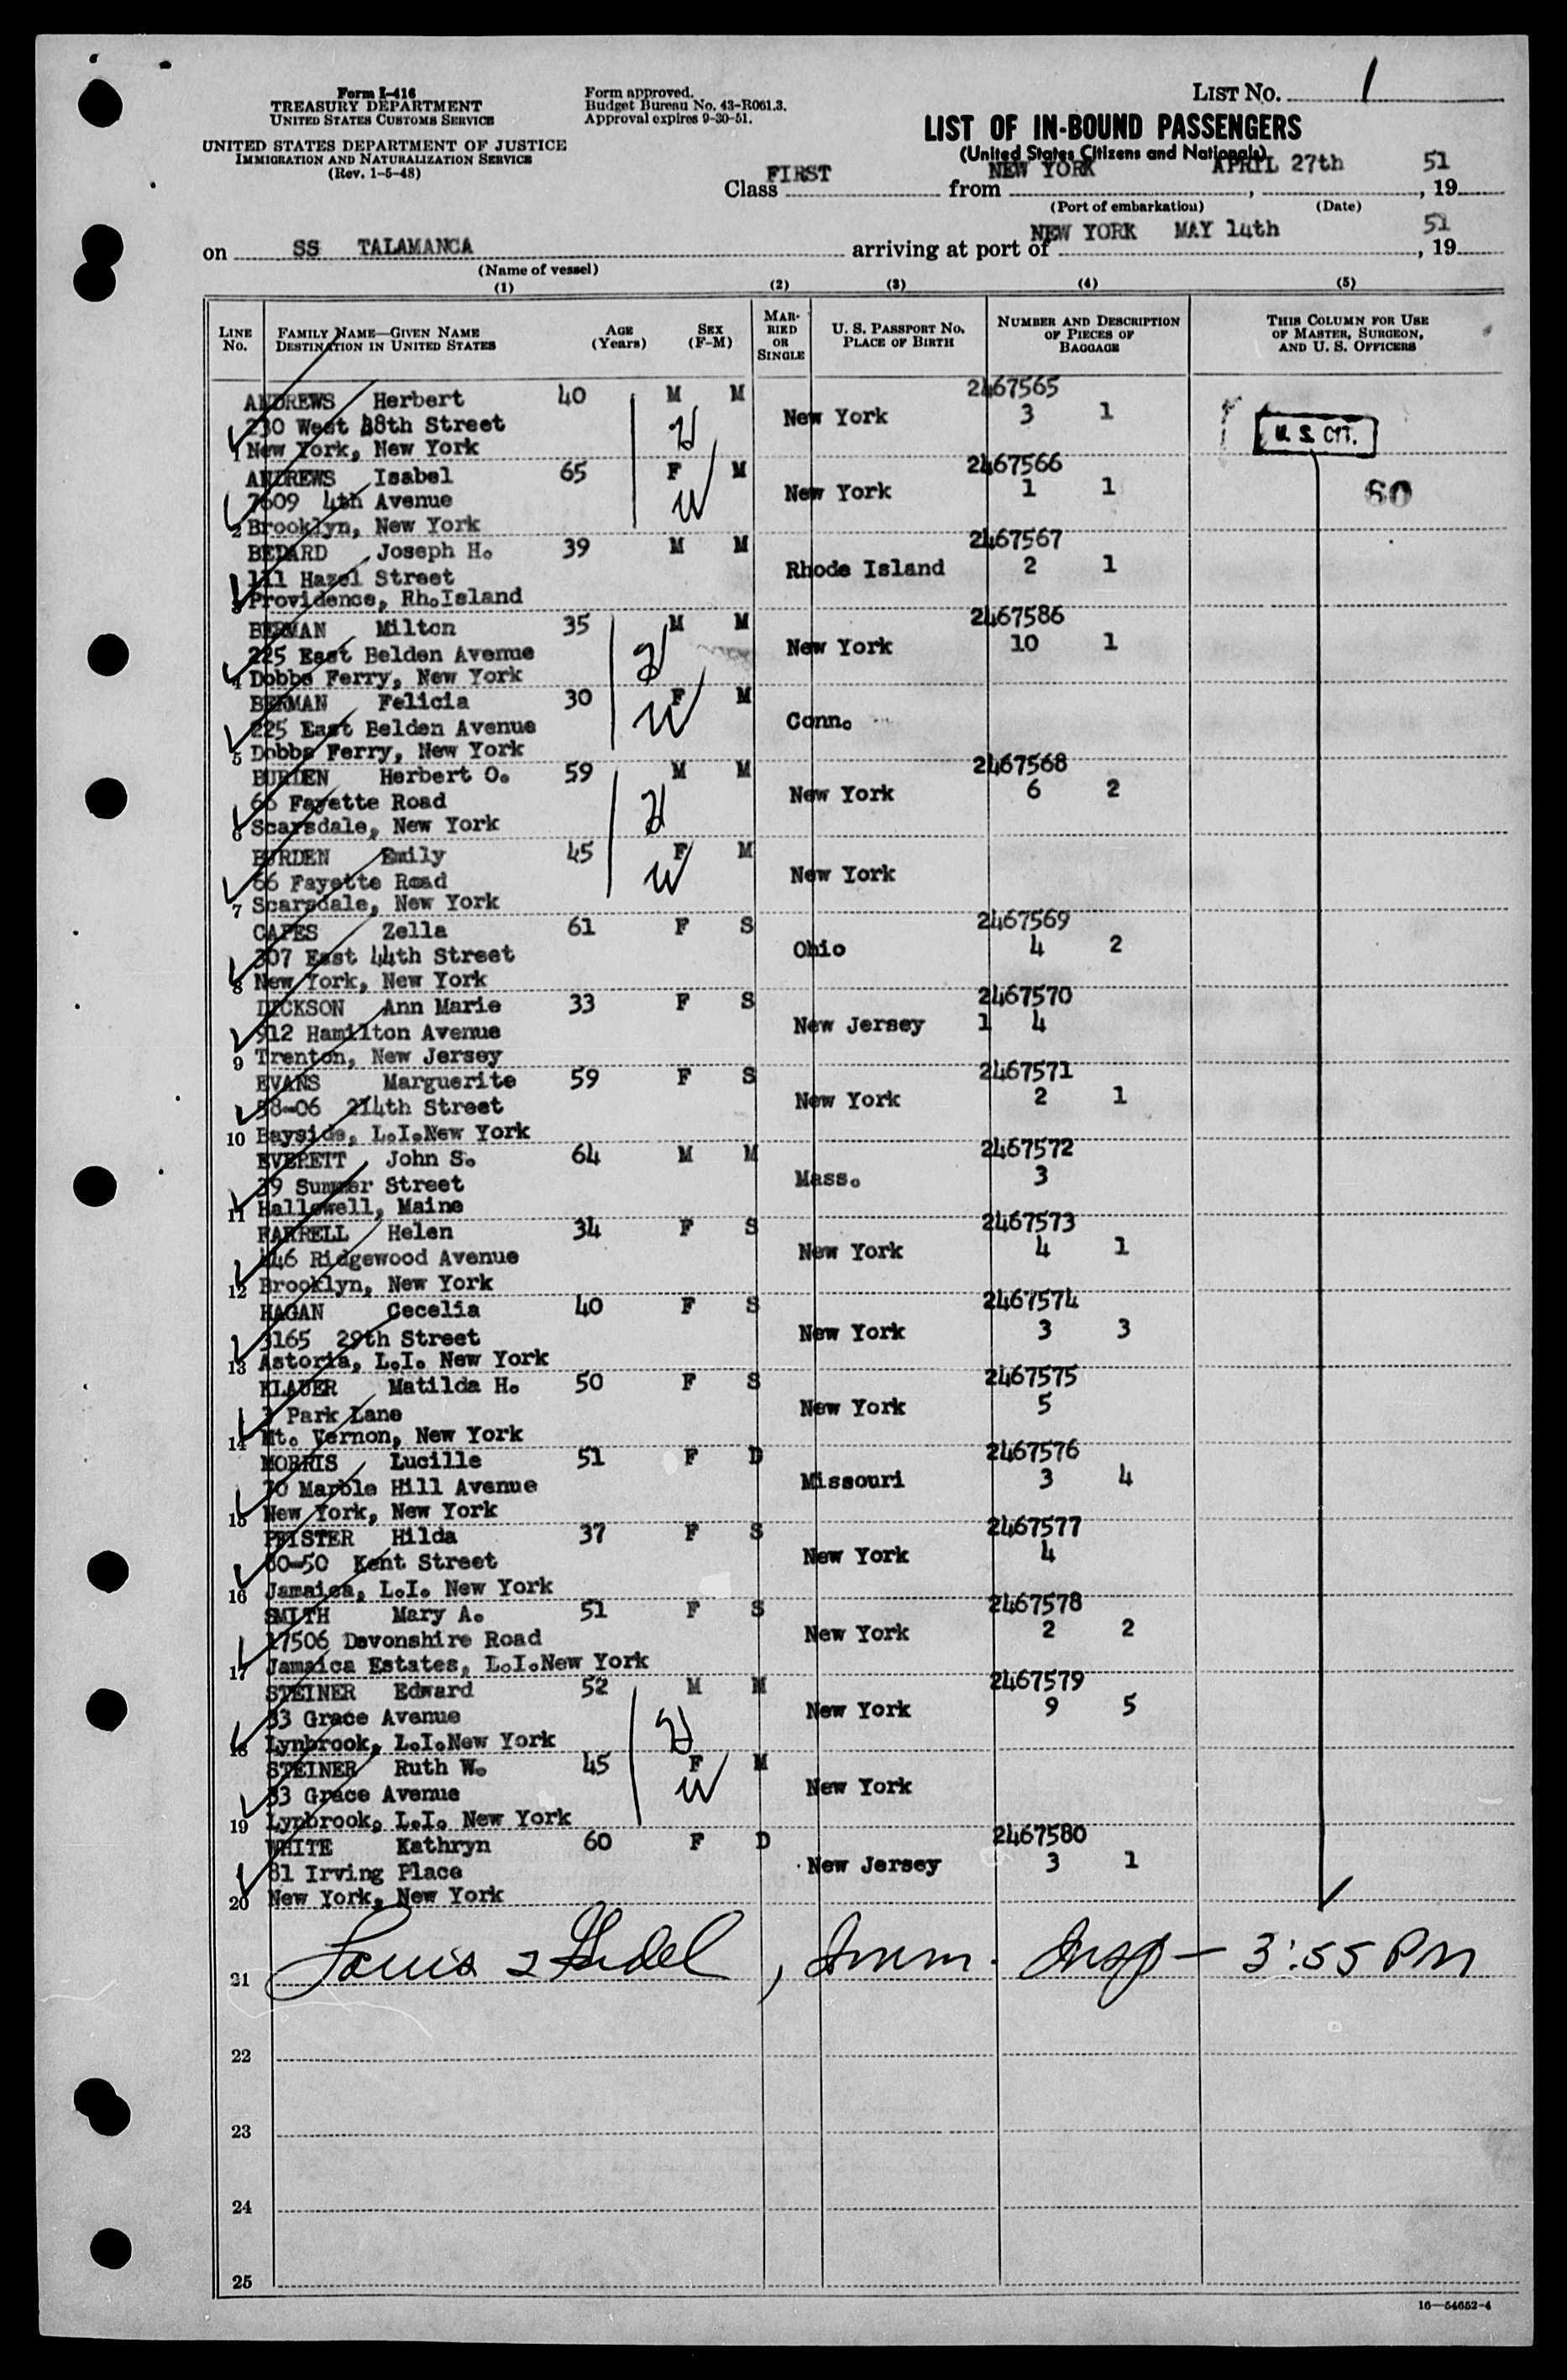 Form I-416
TREASURY DEPARTMENT
UNITED STATES CUSTOMS SERVICE
UNITED STATES DEPARTMENT OF JUSTICE
IMMIGRATION AND NATURALIZATION SERVICE
(Rev. 1-5-48)
Form approved.
Budget Bureau No. 43-R061.3.
Approval expires 9-30-51.
LIST No. 1
LIST OF IN-BOUND PASSENGERS
(United States Citizens and Nationals)
Class FIRST from NEW YORK, APRIL 27th, 19 51
(Port of embarkation) (Date)
on SS TALAMANCA arriving at port of NEW YORK MAY 14th, 19 51
(Name of vessel)
(1) (2) (3) (4) (5)
LINE No. FAMILY NAME—GIVEN NAME DESTINATION IN UNITED STATES AGE (Years) SEX (F-M) MARRIED OR SINGLE U. S. PASSPORT No. PLACE OF BIRTH NUMBER AND DESCRIPTION OF PIECES OF BAGGAGE THIS COLUMN FOR USE OF MASTER, SURGEON, AND U. S. OFFICERS
ANDREWS Herbert 40 M M 2467565
230 West 38th Street H New York 3 1 U. S. CIT.
1 New York, New York
ANDREWS Isabel 65 F M 2467566
7609 4th Avenue W New York 1 1 60
2 Brooklyn, New York
BEDARD Joseph H. 39 M M 2467567
111 Hazel Street Rhode Island 2 1
3 Providence, Rh.Island
BERMAN Milton 35 M M 2467586
225 East Belden Avenue H New York 10 1
4 Dobbs Ferry, New York
BERMAN Felicia 30 F M
225 East Belden Avenue W Conn.
5 Dobbs Ferry, New York
BURDEN Herbert O. 59 M M 2467568
66 Fayette Road H New York 6 2
6 Scarsdale, New York
BURDEN Emily 45 F M
66 Fayette Road W New York
7 Scarsdale, New York
CAPES Zella 61 F S 2467569
307 East 44th Street Ohio 4 2
8 New York, New York
DICKSON Ann Marie 33 F S 2467570
912 Hamilton Avenue New Jersey 1 4
9 Trenton, New Jersey
EVANS Marguerite 59 F S 2467571
58-06 214th Street New York 2 1
10 Bayside, L.I.New York
EVERETT John S. 64 M M 2467572
39 Summer Street Mass. 3
11 Hallowell, Maine
FARRELL Helen 34 F S 2467573
446 Ridgewood Avenue New York 4 1
12 Brooklyn, New York
HAGAN Cecelia 40 F S 2467574
3165 29th Street New York 3 3
13 Astoria, L.I. New York
KLAUER Matilda H. 50 F S 2467575
Park Lane New York 5
14 Mt. Vernon, New York
MORRIS Lucille 51 F D 2467576
70 Marble Hill Avenue Missouri 3 4
15 New York, New York
PFISTER Hilda 37 F S 2467577
80-50 Kent Street New York 4
16 Jamaica, L.I. New York
SMITH Mary A. 51 F S 2467578
17506 Devonshire Road New York 2 2
17 Jamaica Estates, L.I.New York
STEINER Edward 52 M M 2467579
33 Grace Avenue H New York 9 5
18 Lynbrook, L.I.New York
STEINER Ruth W. 45 F M
33 Grace Avenue W New York
19 Lynbrook, L.I. New York
WHITE Kathryn 60 F D 2467580
81 Irving Place New Jersey 3 1
20 New York, New York
21 Louis , Imm. Insp — 3:55 PM
22
23
24
25
16—54652-4